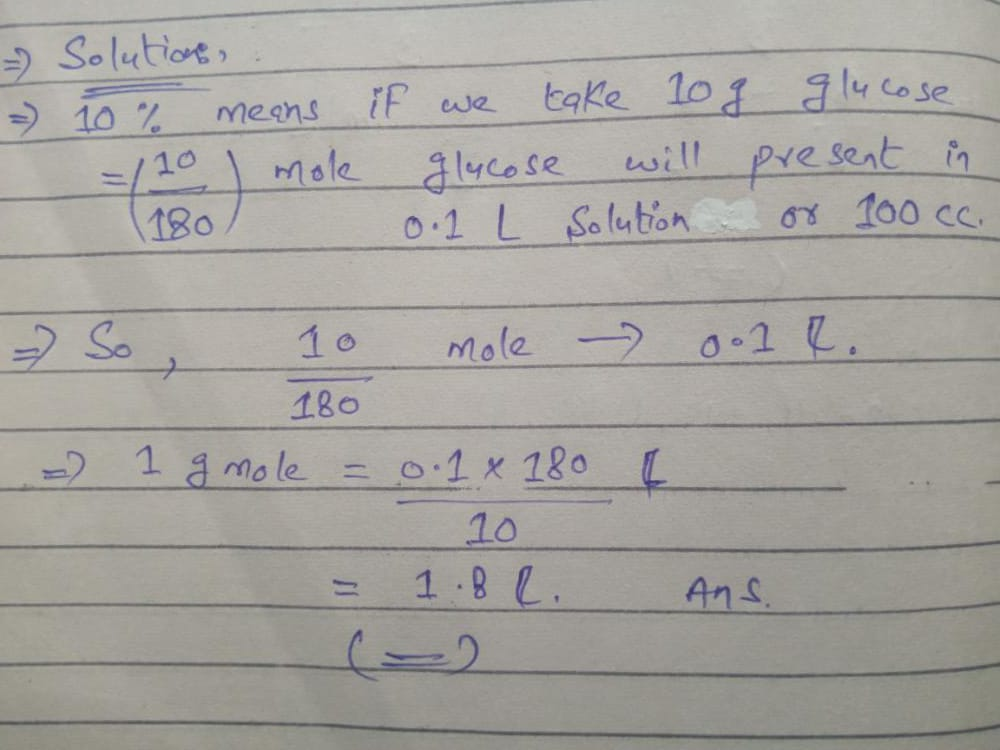 ⇒ Solution,
⇒ 10 % means if we take 10 g glucose
= (10/180) mole glucose will present in
0.1 L Solution or 100 cc.
⇒ So, 10/180 mole → 0.1 L.
⇒ 1 g mole = 0.1 × 180 / 10 L
= 1.8 L. Ans.
(=)